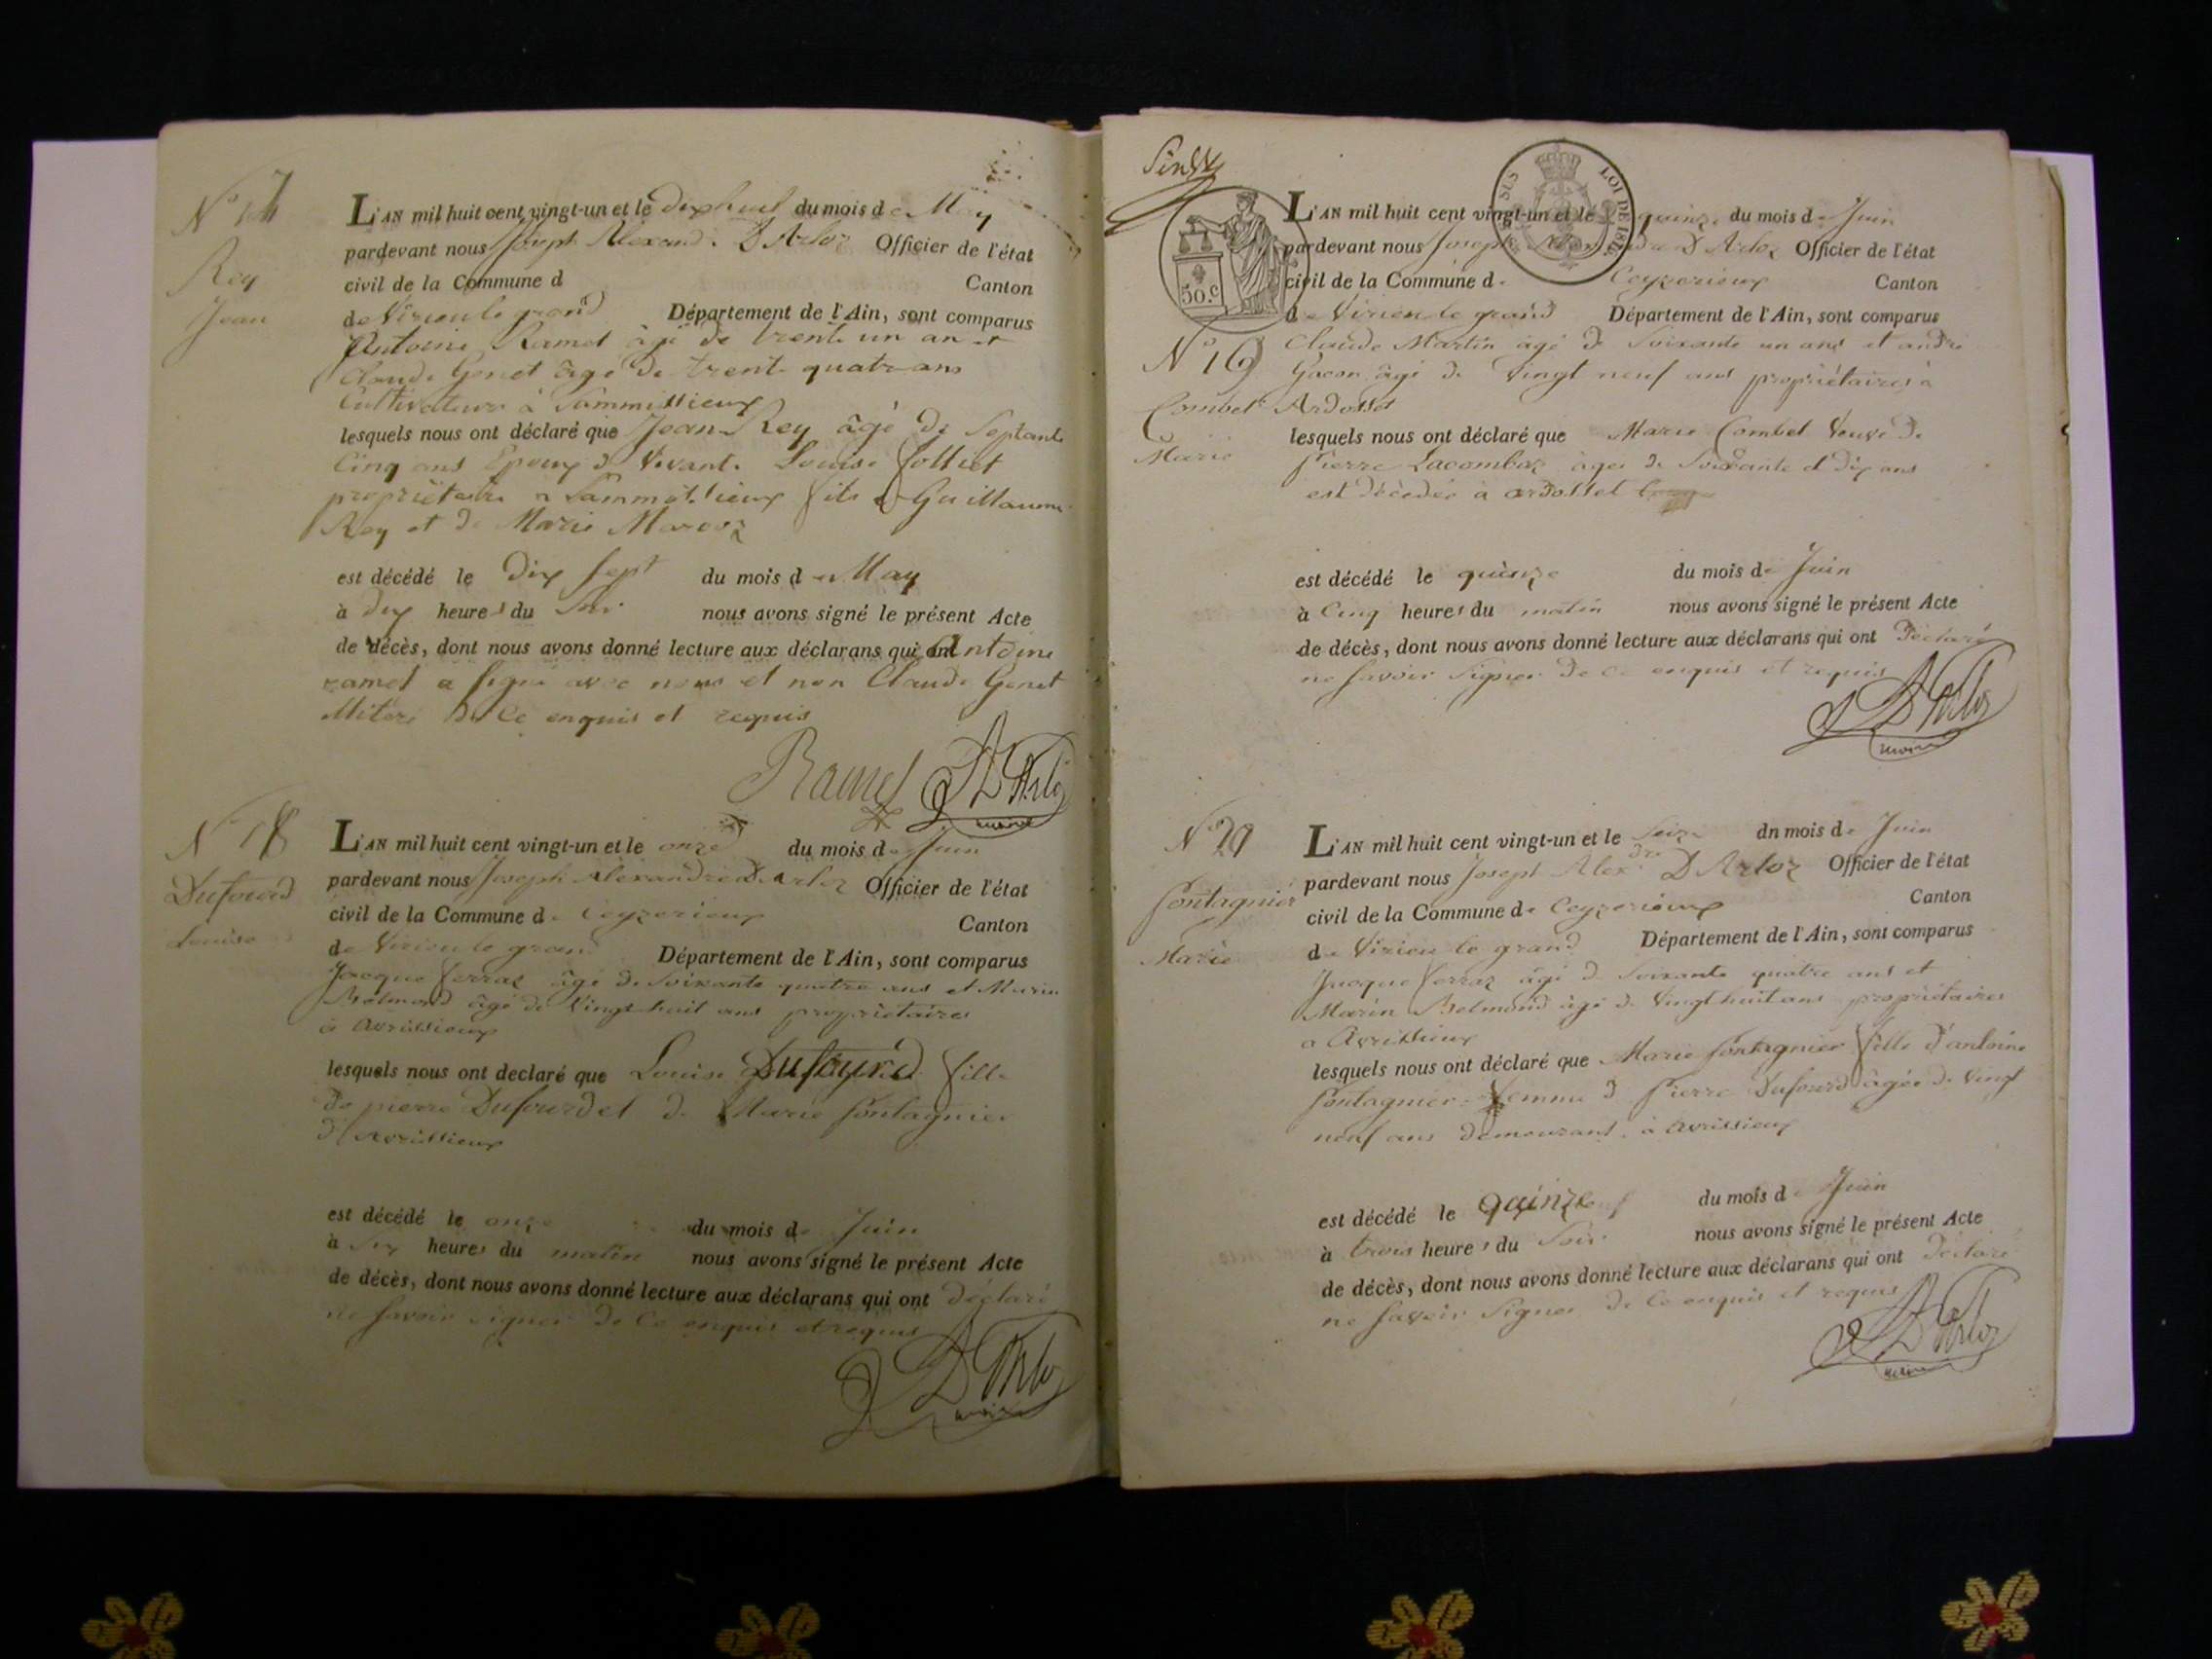 N° 17
Rey
Jean
L'AN mil huit cent vingt-un et le dixhuit du mois de May
pardevant nous Joseph Alexandre D Arloz Officier de l'état
civil de la Commune d Canton
de Virieu le grand Département de l'Ain, sont comparus
Antoine Ramel âgé de trente un an et
Claude Genet âgé de trente quatre ans
Cultivateurs à Sammissieux
lesquels nous ont déclaré que Jean Rey âgé de Septante
Cinq ans Epoux de Vivante Louise Jolliet
propriétaire a Sammissieux fils de Guillaume
Rey et de Marie Marcoz
est décédé le Dix Sept du mois de May
à dix heures du Soir nous avons signé le présent Acte
de décès, dont nous avons donné lecture aux déclarans qui ont Antoine
ramel a signé avec nous et non Claude Genet
de ce enquis et requis
Ramel D'Arloz
maire
N° 18
Dufourd
Louise
L'AN mil huit cent vingt-un et le onze du mois de Juin
pardevant nous Joseph Alexandre D Arloz Officier de l'état
civil de la Commune de Ceyzerieux Canton
de Virieu le grand Département de l'Ain, sont comparus
Jacque ferraz âgé de Soixante quatre ans et Marin
Belmond âgé de Vingt huit ans propriétaires
à Avrissieux
lesquels nous ont declaré que Louise Dufourd fille
de pierre Dufourd et de Marie fontagnier
d'Avrissieux
est décédé le onze du mois de Juin
à Six heures du matin nous avons signé le présent Acte
de décès, dont nous avons donné lecture aux déclarans qui ont Déclaré
ne Savoir Signer de Ce enquis et requis
D'Arloz
maire
SUS LOI DE 181
50.c
L'AN mil huit cent vingt-un et le quinze du mois de Juin
pardevant nous Joseph Alexandre D Arloz Officier de l'état
civil de la Commune de Ceyzerieux Canton
de Virieu le grand Département de l'Ain, sont comparus
N° 19
Combet
Marie
Claude Martin âgé de Soixante un ans et andré
Gacon âgé de Vingt neuf ans propriétaires à
Ardosset
lesquels nous ont déclaré que Marie Combet Veuve de
Pierre Lacombaz âgée de Soixante et Dix ans
est décédée à ardosset
est décédé le quinze du mois de Juin
à Cinq heures du matin nous avons signé le présent Acte
de décès, dont nous avons donné lecture aux déclarans qui ont Déclaré
ne Savoir Signer de Ce enquis et requis
D'Arloz
maire
N° 20
fontagnier
Marie
L'AN mil huit cent vingt-un et le Seize dn mois de Juin
pardevant nous Joseph Alexdre D Arloz Officier de l'état
civil de la Commune de Ceyzerieux Canton
de Virieu le grand Département de l'Ain, sont comparus
Jacque ferraz âgé de Soixante quatre ans et
Marin Belmond âgé de Vingt huit ans propriétaires
a Avrissieux
lesquels nous ont déclaré que Marie fontagnier fille d'antoine
fontagnier femme de Pierre Dufourd âgée de Vingt
neuf ans Demeurant à Avrissieux
est décédé le quinze du mois de Juin
à trois heures du Soir nous avons signé le présent Acte
de décès, dont nous avons donné lecture aux déclarans qui ont Déclaré
ne Savoir Signer de Ce enquis et requis
D'Arloz
maire